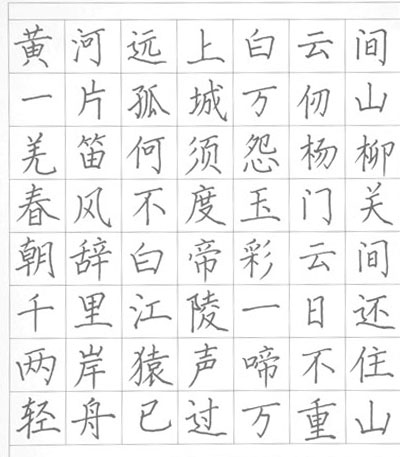 黄河远上白云间
一片孤城万仞山
羌笛何须怨杨柳
春风不度玉门关
朝辞白帝彩云间
千里江陵一日还
两岸猿声啼不住
轻舟已过万重山